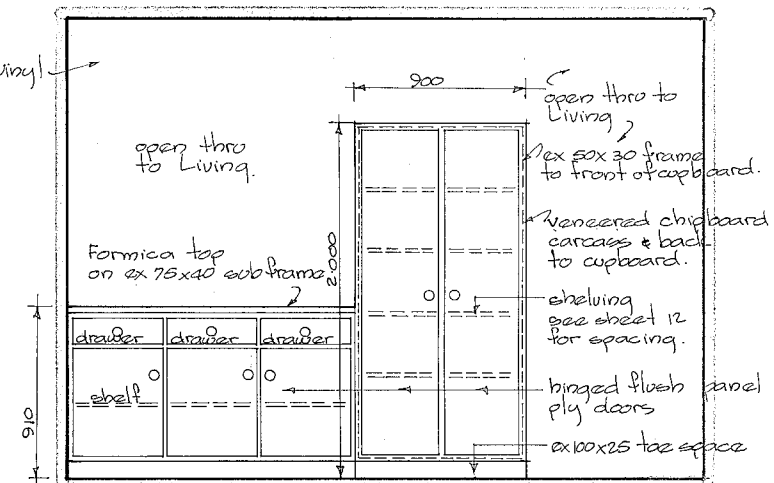 vinyl
900
open thro to
Living
open thro
to Living.
ex 50x30 frame
to front of cupboard.
veneered chipboard
carcass & back
to cupboard.
Formica top
on ex 75x40 subframe
2.000
shelving
see sheet 12
for spacing.
drawer drawer drawer
shelf
hinged flush panel
ply doors
910
ex100x25 toe space